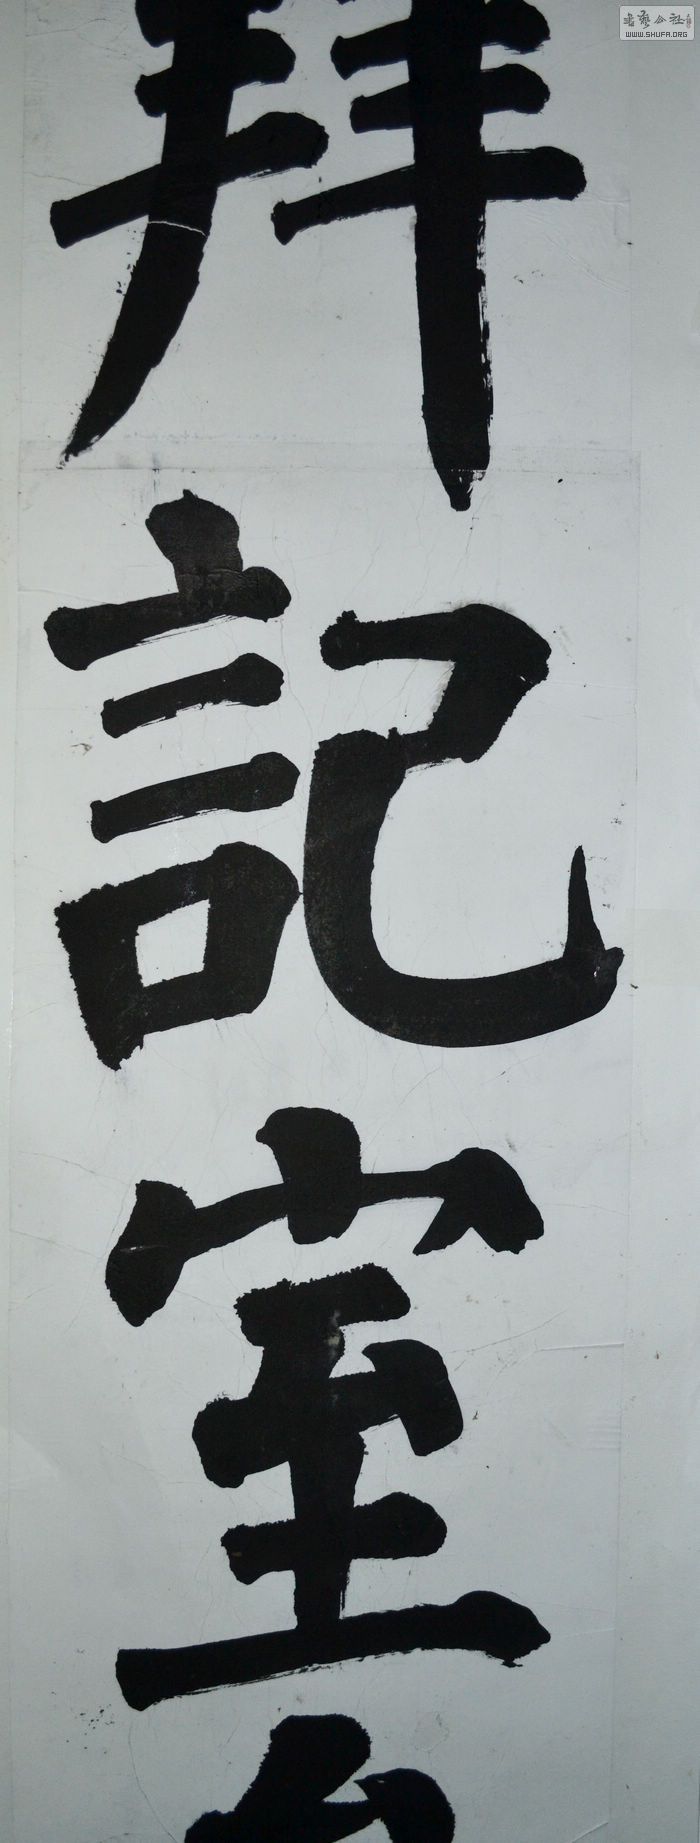 拜
記
室
書藝公社
WWW.SHUFA.ORG